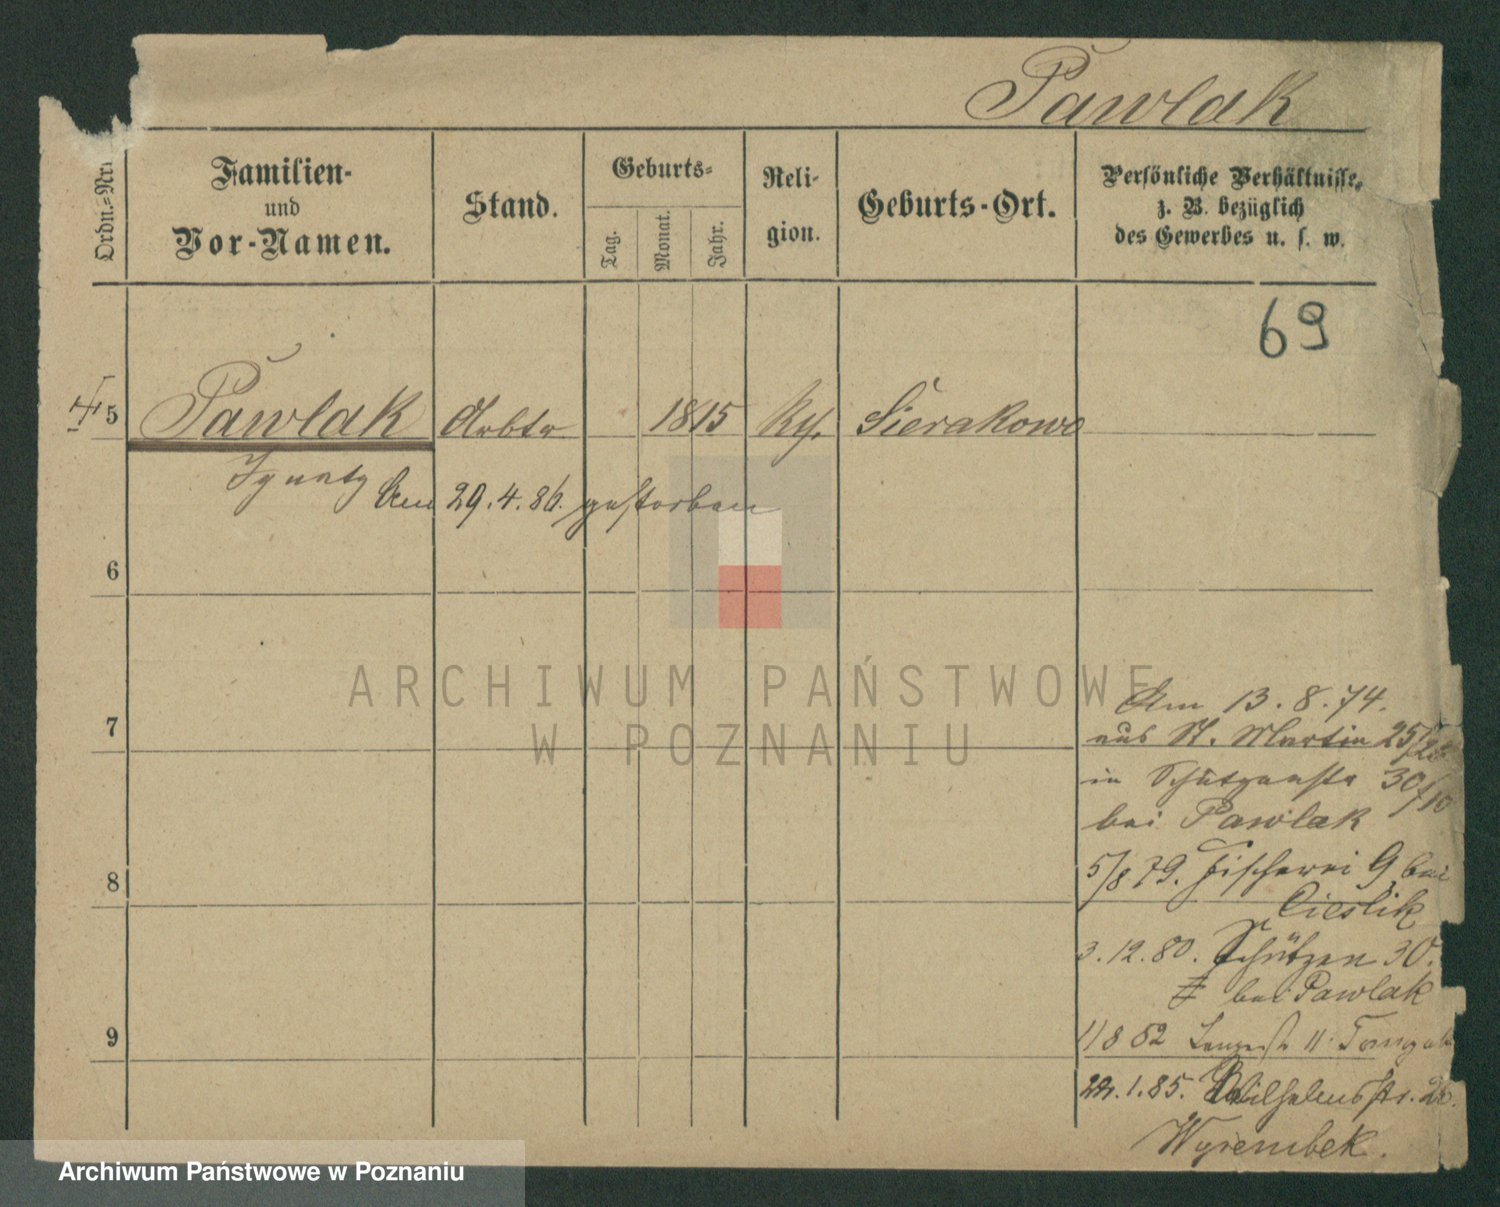 Pawlak
Ordn.-Nr.
Familien-
und
Vor-Namen.
Stand.
Geburts-
Tag.
Monat.
Jahr.
Reli-
gion.
Geburts-Ort.
Persönliche Verhältnisse,
z. B. bezüglich
des Gewerbes u. s. w.
69
5 Pawlak Arbtr 1815 Kth. Sierakowo
Ignatz Am 29.4.86. gestorben
6
7
8
9
Am 13.8.74.
aus St. Martin 25/26
in Schützenstr 30/10
bei Pawlak
5/8 79. Fischerei 9 bei
Cieslik
3.12.80. Schützen 30.
bei Pawlak
1/8 82 11
.1.85. Wilhelmsstr.
Wyrembek.
ARCHIWUM PAŃSTWOWE
W POZNANIU
Archiwum Państwowe w Poznaniu